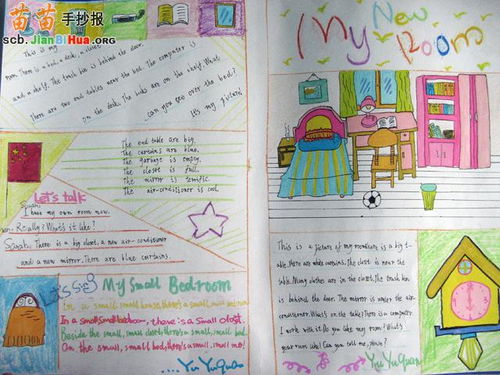 苗苗手抄报
scb.JianBiHua.org
This is my
room. There is a bed, a desk, a closet
and a shelf. The trash bin is behind the door. The computer is
on the desk. The books are on the shelf. What
There are two end tables near the bed.
can you see over the bed?
It's my picture!
The end table are big.
The curtains are blue.
The garbage is empty.
The closet is full.
The mirror is terrific.
The air-conditioner is cool.
Let's talk
I have my own room now.
Really? What's it like?
Sarah: There is a big closet, a new air-conditioner
and a new mirror. There are blue curtains.
Let's see
My Small Bedroom
In a small, small house, there's a small
In a small, small bedroom, there is a small closet.
Beside the small, small closet, there's a small, small bed.
On the small, small bed, there's a small, small me!
.... Yu YuQuan
My New
Room
This is a picture of my room. There is a big
table. Here are white curtains. The closet is near the
table. Many clothes are in the closet. The trash bin
is behind the door. The mirror is under the air-
conditioner. What's on the table? There is a computer.
I work with it. Do you like my room? What's
your room like? Can you tell me, please?
Yu YuQuan